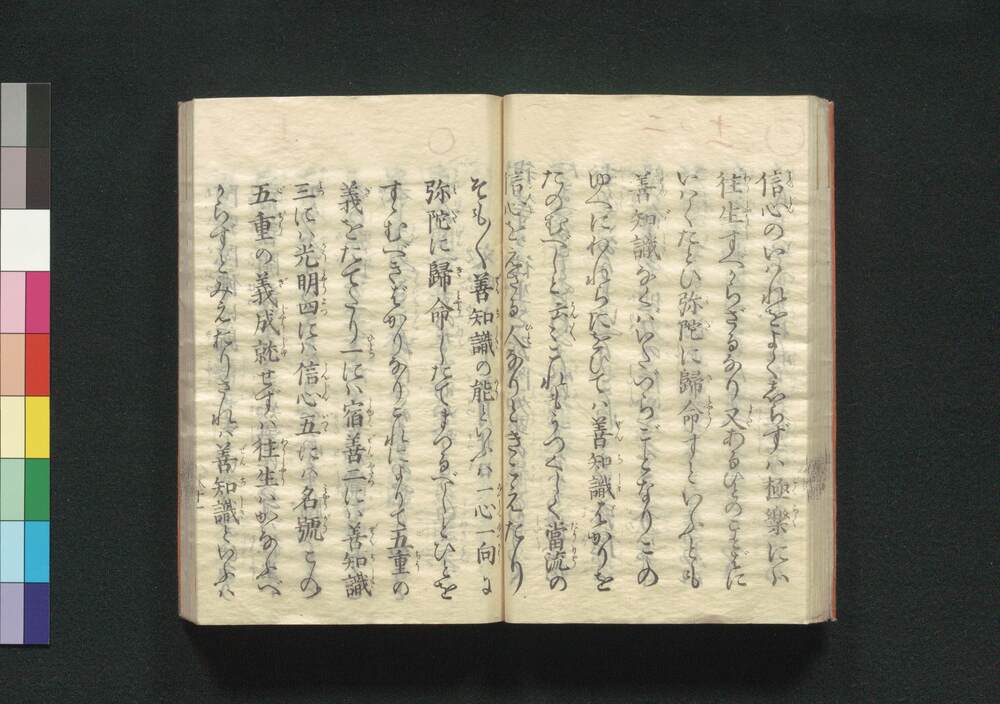 信心のいはれをよくしらずは極樂には
往生すべからざるなり又あるひとのことばに
いはくたとひ弥陀に歸命すといふとも
善知識なくはいたづらごとなりこの
ゆへにわれらにをひては善知識ばかりを
たのむべしと云々これもうつくしく當流の
信心をえざる人なりときこえたり
そも〳〵善知識の能といふは一心一向に
弥陀に歸命したてまつるべしとひとを
すゝむべきばかりなりこれによりて五重の
義をたてたり一には宿善二には善知識
三には光明四には信心五には名號この
五重の義成就せずは往生はかなふべ
からずとみえたりされば善知識といふは